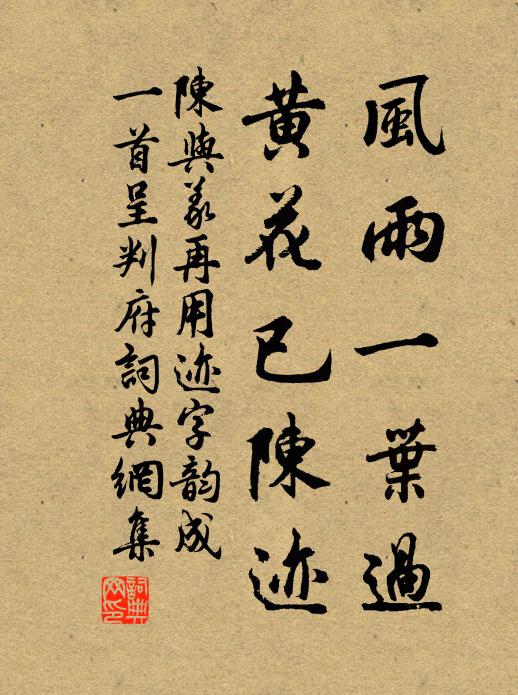 風雨一葉過
黃花已陳迹
陳與義再用迹字韵成
一首呈判府詞典網集
詞典网印